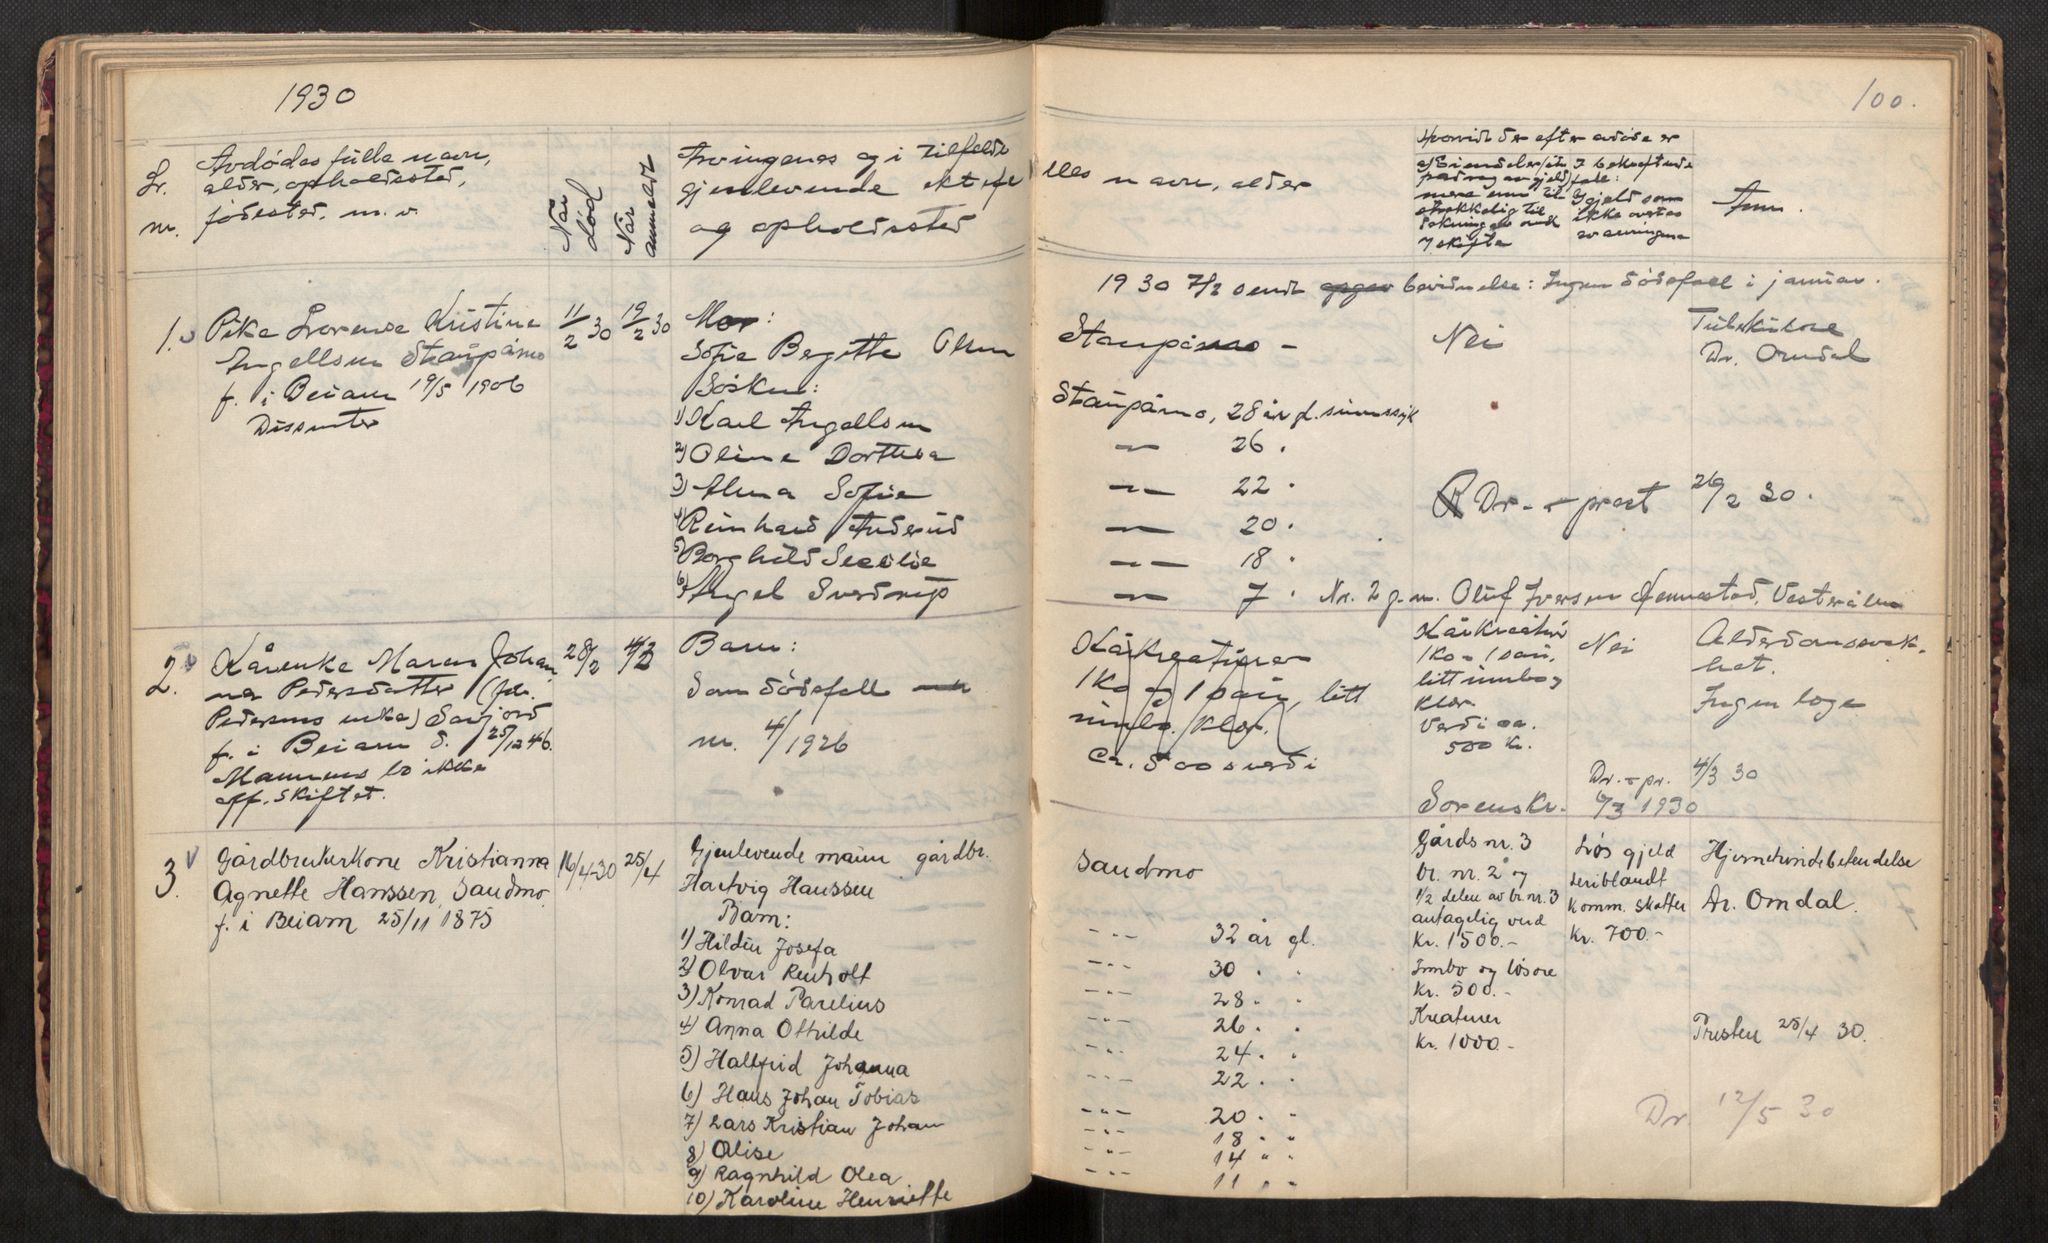 1930
100.
Lr.
nr.
Avdødes fulle navn,
alder, opholdssted,
fødested, m.v.
Når død
Når anmeldt
Arvingenes og i tilfelde
gjenlevende ektefel
og opholdssted
lles navn, alder
Hvorvidt der efter avdøde er
mere enn til-
strekkelig til
I skifte
I bekreftende
fall:
Gjeld som
ikke overtas
av arvingene
Anm.
1930 7/2 sendt opgav bevidnelse: Ingen dødsfall i januar.
1.
Pike Lorense Kristine
Ingellsen Staupåmo
f. i Beiarn 19/5 1906
Dissenter
11/2 30
19/2 30
Mor:
Sofie Begitte Olsen
Søsken:
1) Karl Ingellsen
2) Oline Dorthea
3) Alma Sofie
4) Reinhard
5) Borghild Secilie
6) Ingel Sverdrup
Staupåmo -
Staupåmo, 28 år gl. sinnssyk
— 26 .
— 22 .
— 20 .
— 18 .
— 7 . Nr. 2 g.m. Oluf Iversen Vesterålen
Nei
Tuberkulose
Dr. Omdal
Dr. - prest 26/2 30.
2.
Kårenke Maren Johan
na Pedersdatter (
Pedersens enke) Savjord
f. i Beiarn d. 25/12 46.
Mannens bo ikke
off. skiftet.
28/2
4/3
Barn:
Som dødsfall
nr. 4/1926
Kårkreaturer
1 ko og 1 sau, litt
innbo, klær.
Ca. 500 s verdi
Kårkreatur
1 ko - 1 sau,
litt innbo
klær
Verdi ca.
500 kr.
Nei
Alderdomssvak-
het.
Ingen lege
Dr. - pr. 4/3 30
Sorenskr. 6/3 1930
3.
Gårdbrukerkone Kristianna
Agnette Hanssen, Sandmo.
f. i Beiarn 25/11 1875
16/4-30
25/4
Gjenlevende mann gårdbr.
Hartvig Hanssen
Barn:
1) Hildur Josefa
2) Olvar Renholt
3) Konrad Parelius
4) Anna Othilde
5) Hallfrid Johanna
6) Hans Johan Tobias
7) Lars Kristian Johan
8) Alise
9) Ragnhild Olea
10) Karoline Henriette
Sandmo
-"- 32 år gl.
-"- 30 . "
-"- 28 . "
-"- 26 . "
-"- 24 . "
-"- 22 . "
-"- 20 . "
-"- 18 . "
-"- 14 " "
-"- 11 . "
Gårds nr. 3
br. nr. 2 og
1/2 delen av br. nr. 3
antagelig verd
kr. 1500.-
Innbo og løsøre
kr. 500.-
Kreaturer
kr. 1000.-
Løs gjeld
deriblandt
komm. skatter
kr. 700.-
Hjernehindebetendelse
Dr. Omdal.
Presten 25/4 30.
Dr. 12/5 30